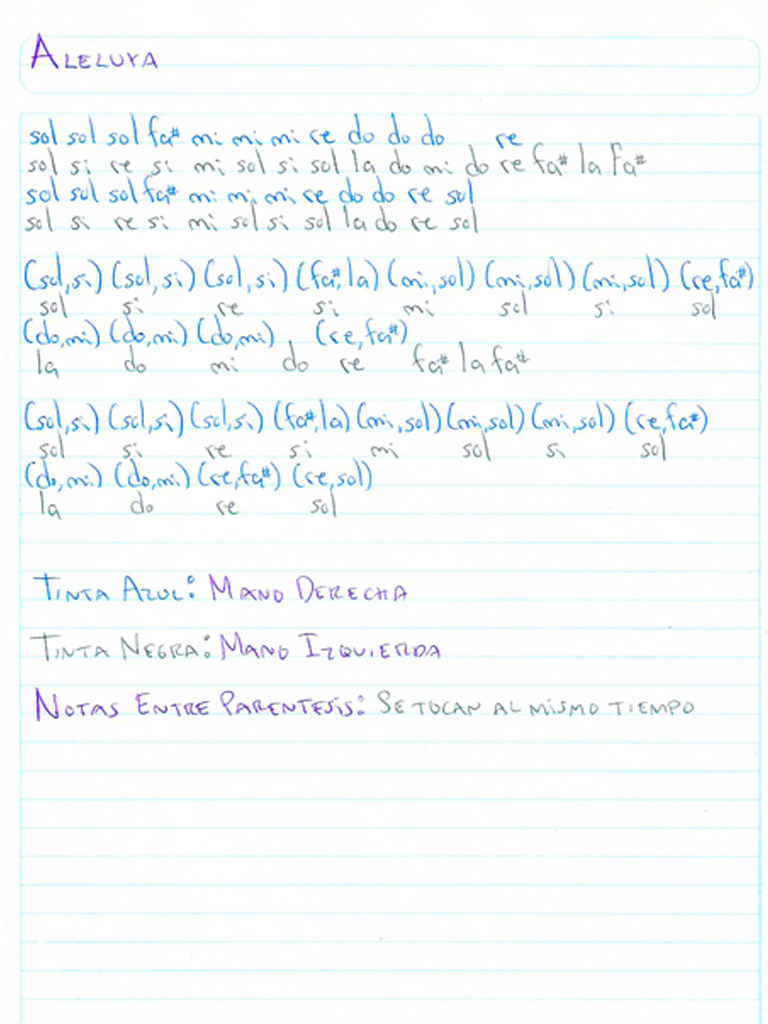 ALELUYA
sol sol sol fa# mi mi mi re do do do re
sol si re si mi sol si sol la do mi do re fa# la fa#
sol sol sol fa# mi mi mi re do do re sol
sol si re si mi sol si sol la do re sol
(sol,si) (sol,si) (sol,si) (fa#,la) (mi,sol) (mi,sol) (mi,sol) (re,fa#)
sol si re si mi sol si sol
(do,mi) (do,mi) (do,mi) (re,fa#)
la do mi do re fa# la fa#
(sol,si) (sol,si) (sol,si) (fa#,la) (mi,sol) (mi,sol) (mi,sol) (re,fa#)
sol si re si mi sol si sol
(do,mi) (do,mi) (re,fa#) (re,sol)
la do re sol
TINTA AZUL: MANO DERECHA
TINTA NEGRA: MANO IZQUIERDA
NOTAS ENTRE PARENTESIS: SE TOCAN AL MISMO TIEMPO